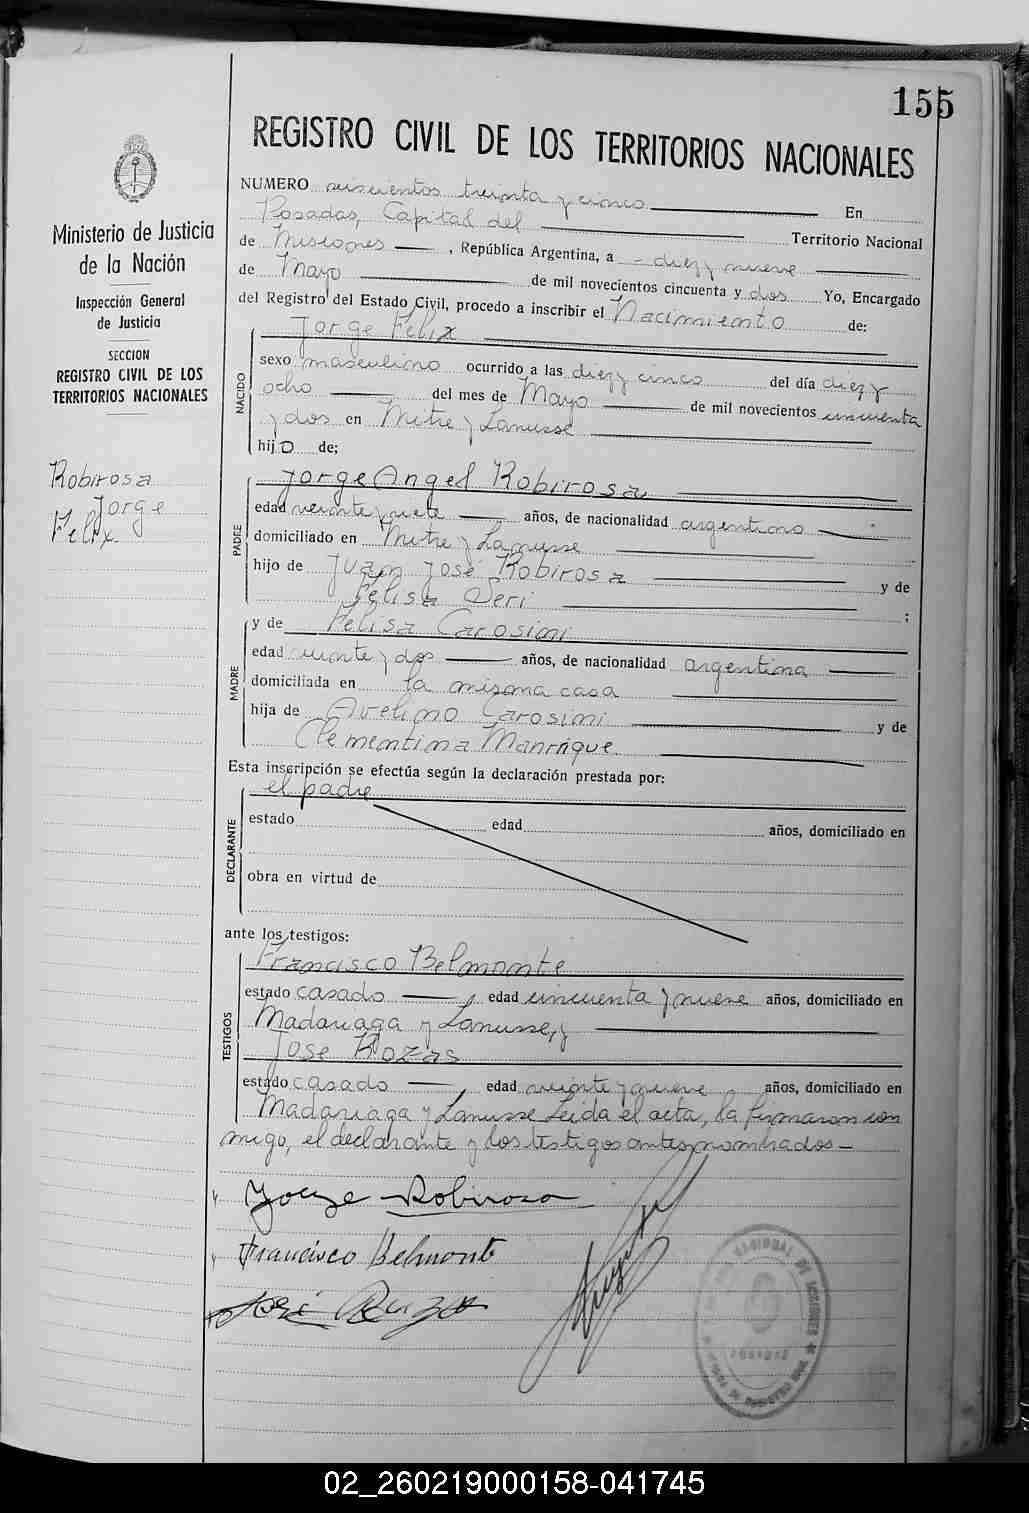 155
REGISTRO CIVIL DE LOS TERRITORIOS NACIONALES
Ministerio de Justicia
de la Nación
Inspección General
de Justicia
SECCION
REGISTRO CIVIL DE LOS
TERRITORIOS NACIONALES
Robirosa
Jorge
Felix
NUMERO seiscientos treinta y cinco En
Posadas, Capital del Territorio Nacional
de Misiones, República Argentina, a diez y nueve
de Mayo de mil novecientos cincuenta y dos Yo, Encargado
del Registro del Estado Civil, procedo a inscribir el Nacimiento de:
Jorge Félix
NACIDO
sexo masculino ocurrido a las diez y cinco del día diez y
ocho del mes de Mayo de mil novecientos cincuenta
y dos en Mitre y Lanusse
hijo de:
Jorge Angel Robirosa
PADRE
edad veinte y siete años, de nacionalidad argentino
domiciliado en Mitre y Lanusse
hijo de Juan José Robirosa y de
Felisa Seri ;
y de Felisa Carosini
MADRE
edad veinte y dos años, de nacionalidad argentina
domiciliada en la misma casa
hija de Avelino Carosini y de
Clementina Manrique
Esta inscripción se efectúa según la declaración prestada por:
el padre
DECLARANTE
estado edad años, domiciliado en
obra en virtud de
ante los testigos:
Francisco Belmonte
TESTIGOS
estado casado edad cincuenta y nueve años, domiciliado en
Madariaga y Lanusse, y
José Rozas
estado casado edad veinte y nueve años, domiciliado en
Madariaga y Lanusse Leida el acta, la firmaron con
migo, el declarante y los testigos antes nombrados—
Jorge Robirosa
Francisco Belmonte
José
NACIONAL DE MISIONES
POSADAS
02_260219000158-041745